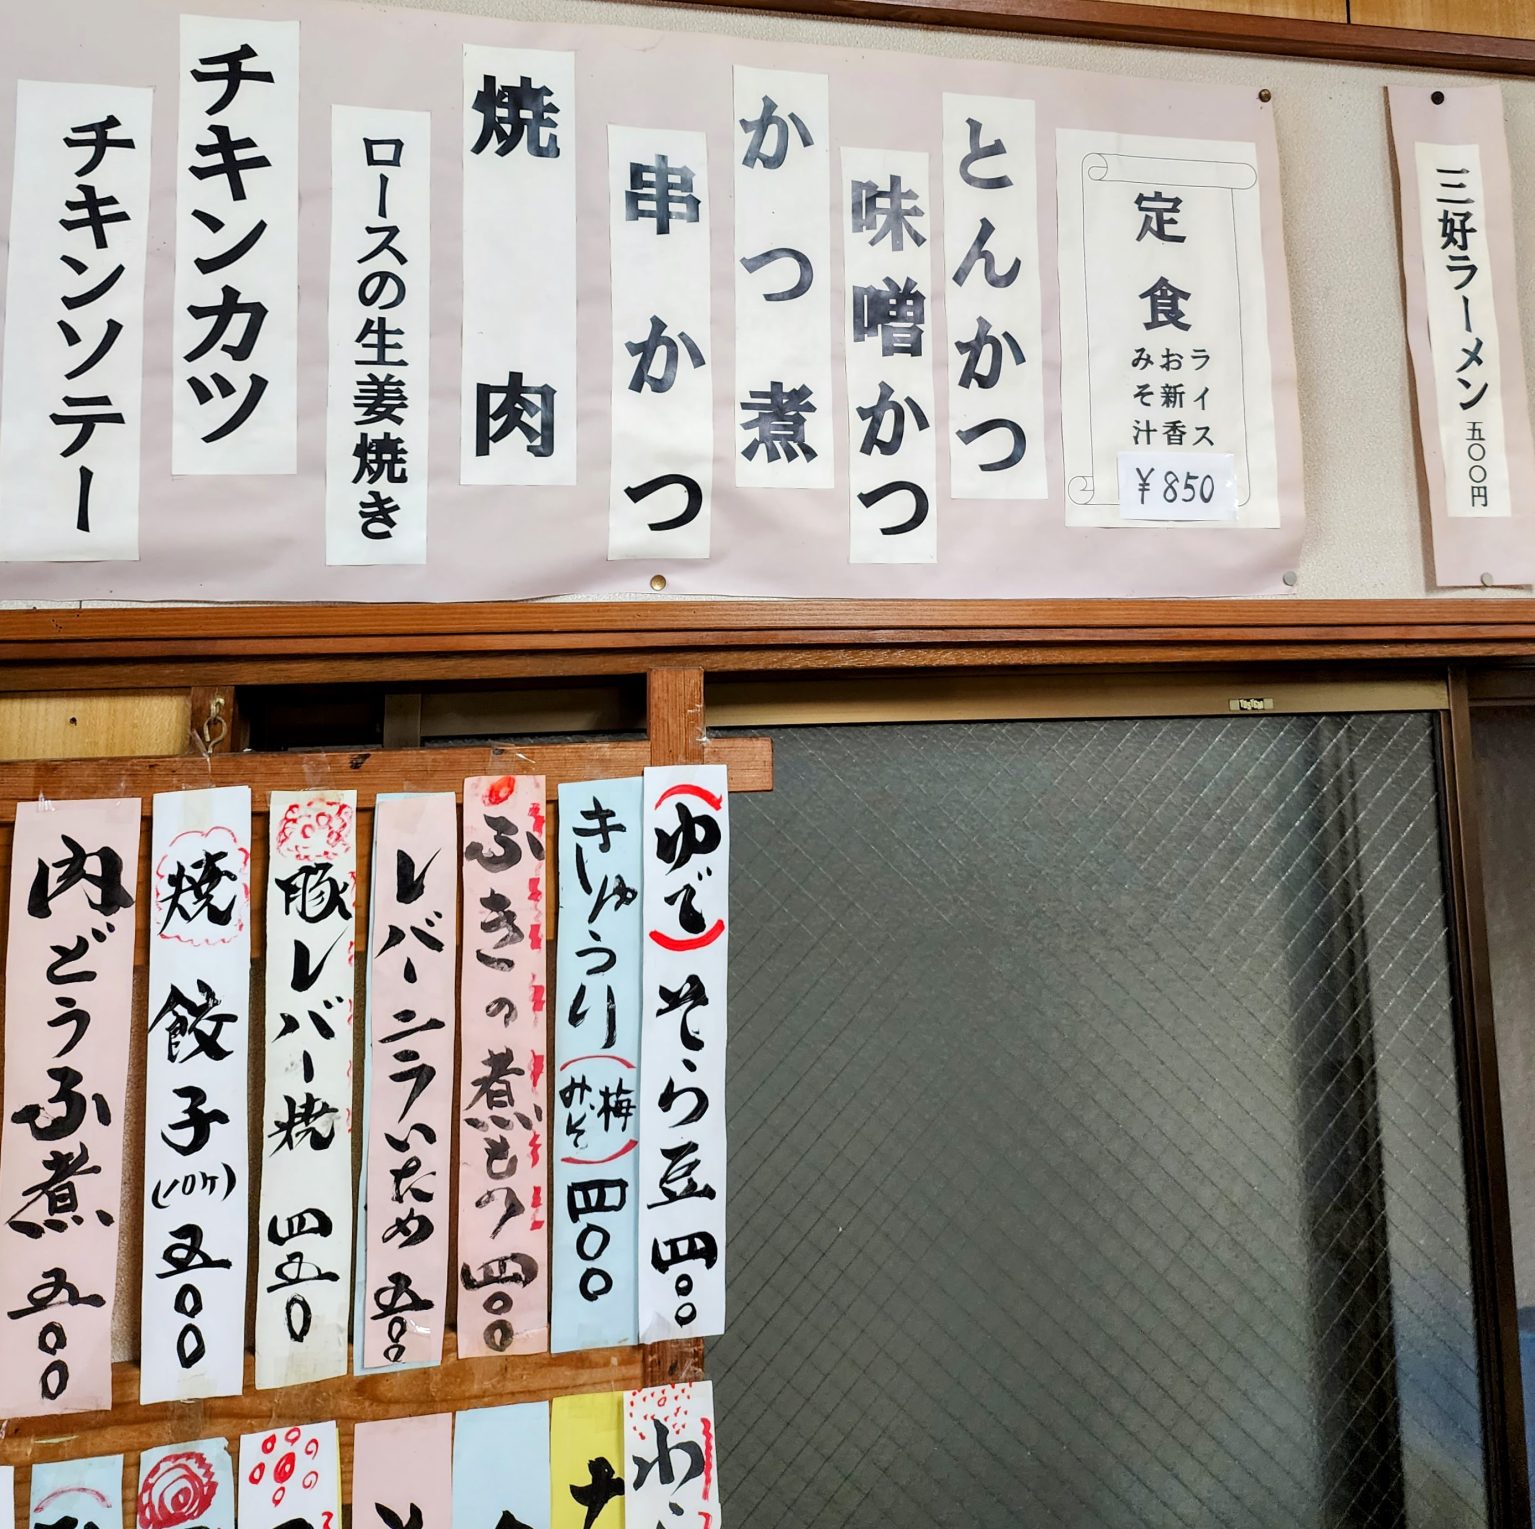 三好ラーメン 五〇〇円
定食
ライス
お新香
みそ汁
¥850
とんかつ
味噌かつ
かつ煮
串かつ
焼肉
ロースの生姜焼き
チキンカツ
チキンソテー
(ゆで)そら豆 四〇〇
きゅうり(梅みそ) 四〇〇
ふきの煮もの 四〇〇
レバーニラいため 五〇〇
豚レバー焼 四五〇
焼餃子(10ケ) 五〇〇
肉どうふ煮 五〇〇